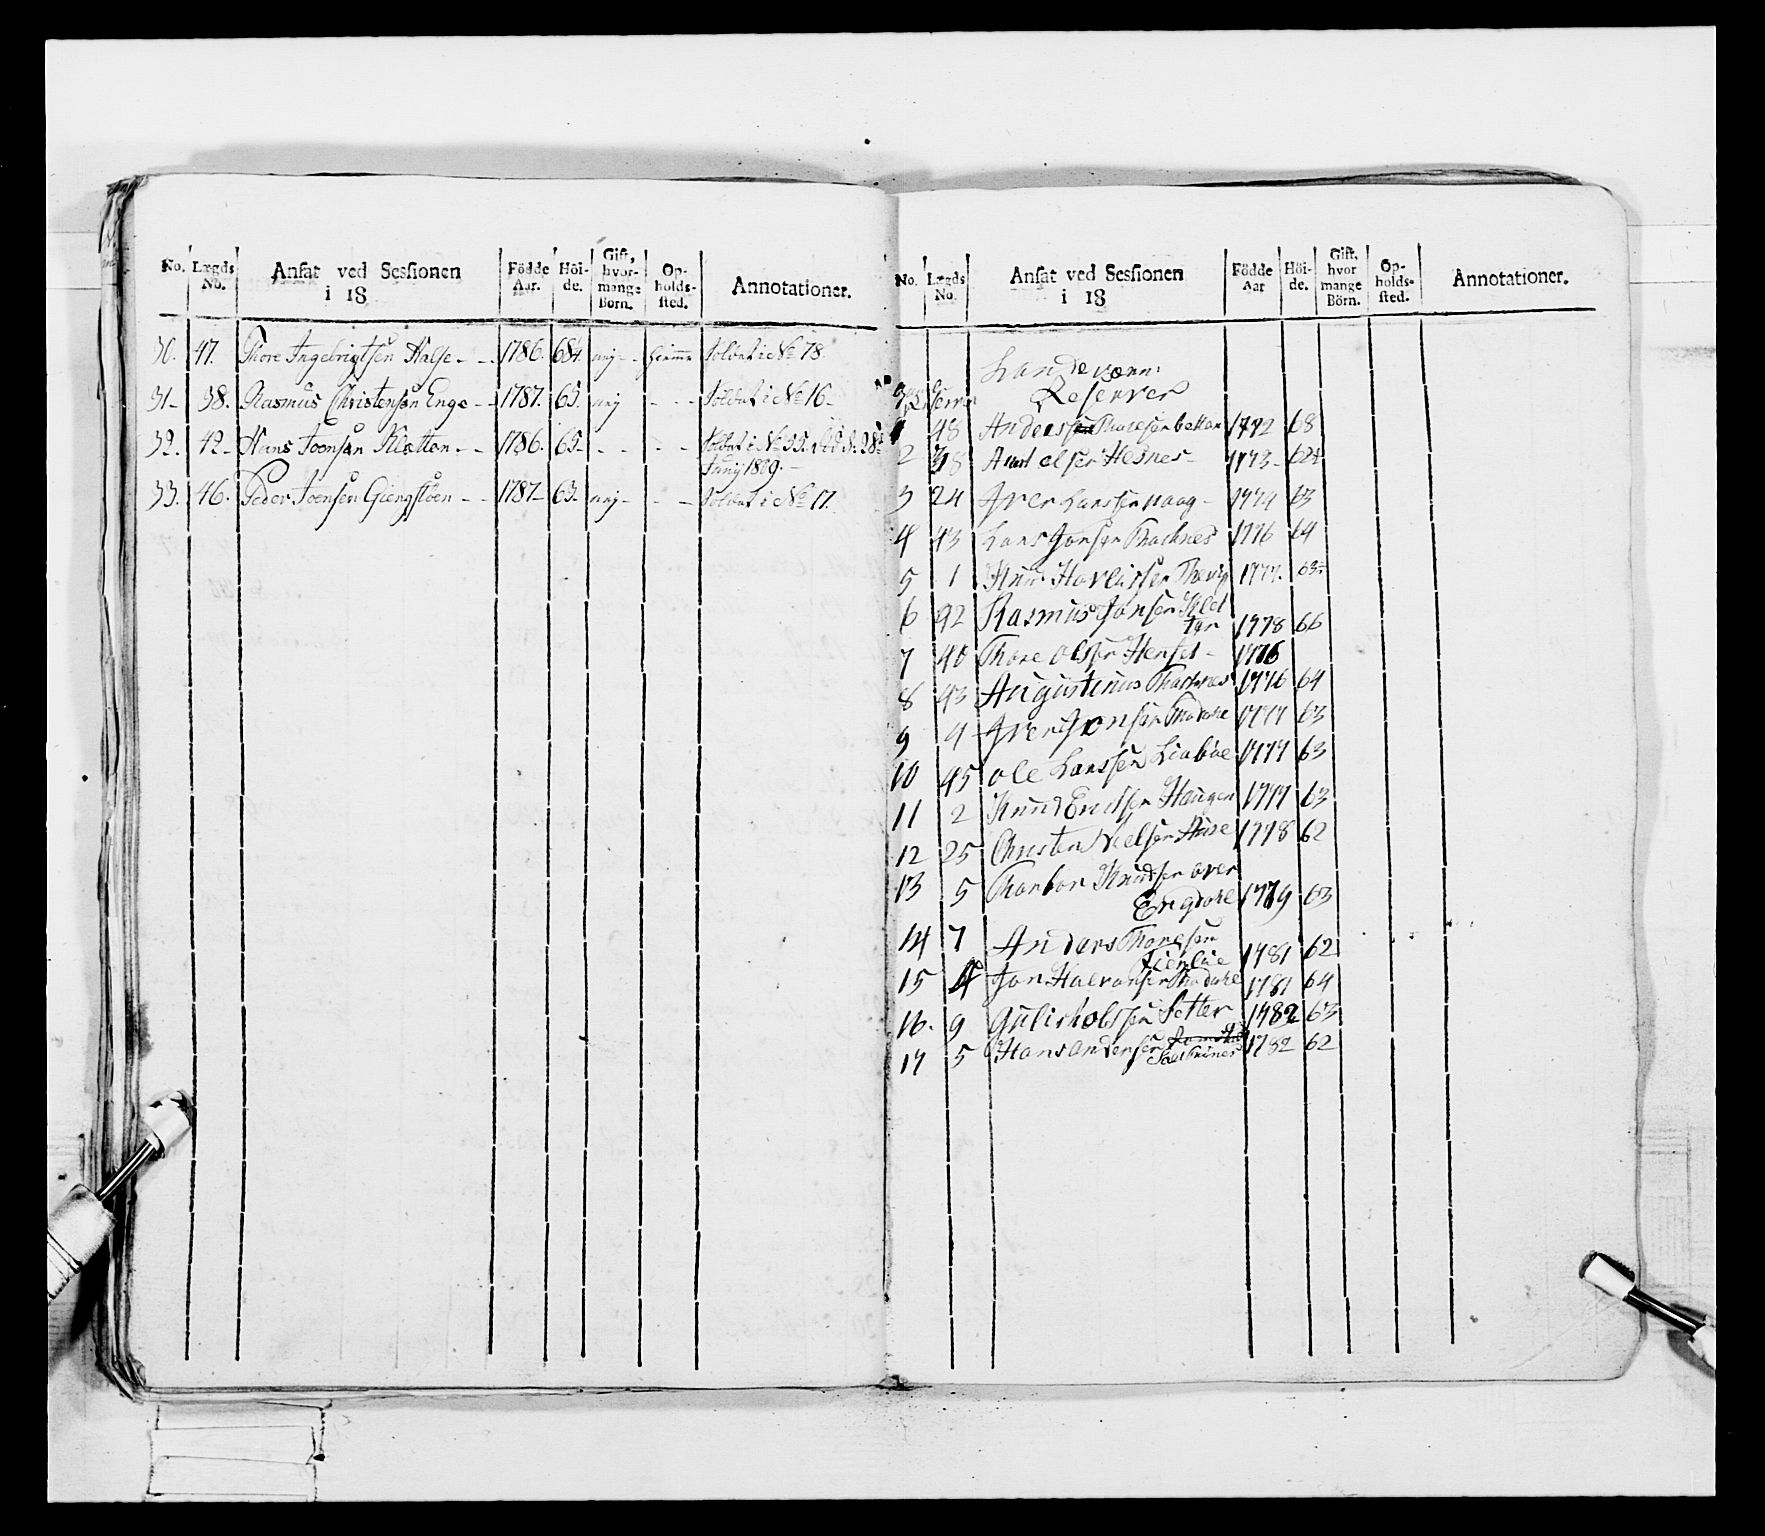 No. Lægds No. Ansat ved Sessionen i 18 Födde Aar. Höi-de. Gift, hvor-mange Börn. Op-holds-sted. Annotationer.
30. 47. Thore Ingebrigtsen Halse - - 1786. 68¼ unj - hiemme Soldat i No 78.
31 - 38. Rasmus Christensen Enge - - 1787. 63. unj - - - Soldat i No 16 -
32. 42 - Hans Joensen Kletten - - 1786. 65 - - - - - Soldat i No 55.
Junj 1809. -
33. 46. Peder Joensen Giengstöen - - 1787 - 63 - unj - - - Soldat i No 17.
No. Lægds No. Ansat ved Sessionen i 18 Födde Aar Höi-de. Gift, hvor mange Börn. Op-holds-sted. Annotationer.
Landeværn:
Reserver
1 48 Anders Thoresen 1772 68
2 38 Hesnes - 1773 - 62¼
3 24 Iver Larssen Haag - 1774 63
4 43 Lars Jonsen Thachnes 1776 64
5 1 1777.
6 92 Rasmus Jonsen Klet
ten 1778 66
7 40 Thore Olsen Henset - 1776
8 43 Augustinus Thachnes 1776 64
9 4 Iver Jonsen Thodahl 1777 63
10 45 Ole Larssen Liaböe 1777 63
11 2 Knud Ericksen Haugen 1777 63
12 25 Christen Nielsen Aure 1778 62
13 5 Thorbor Knudsen over
Engdahl 1779 63
14 7 Anders Thoresen
1781 62
15 4 Jon Halvorsen Thodahl 1781 64
16. 9 Setter 1782 63
17 5 Hans Andersen 1782 62